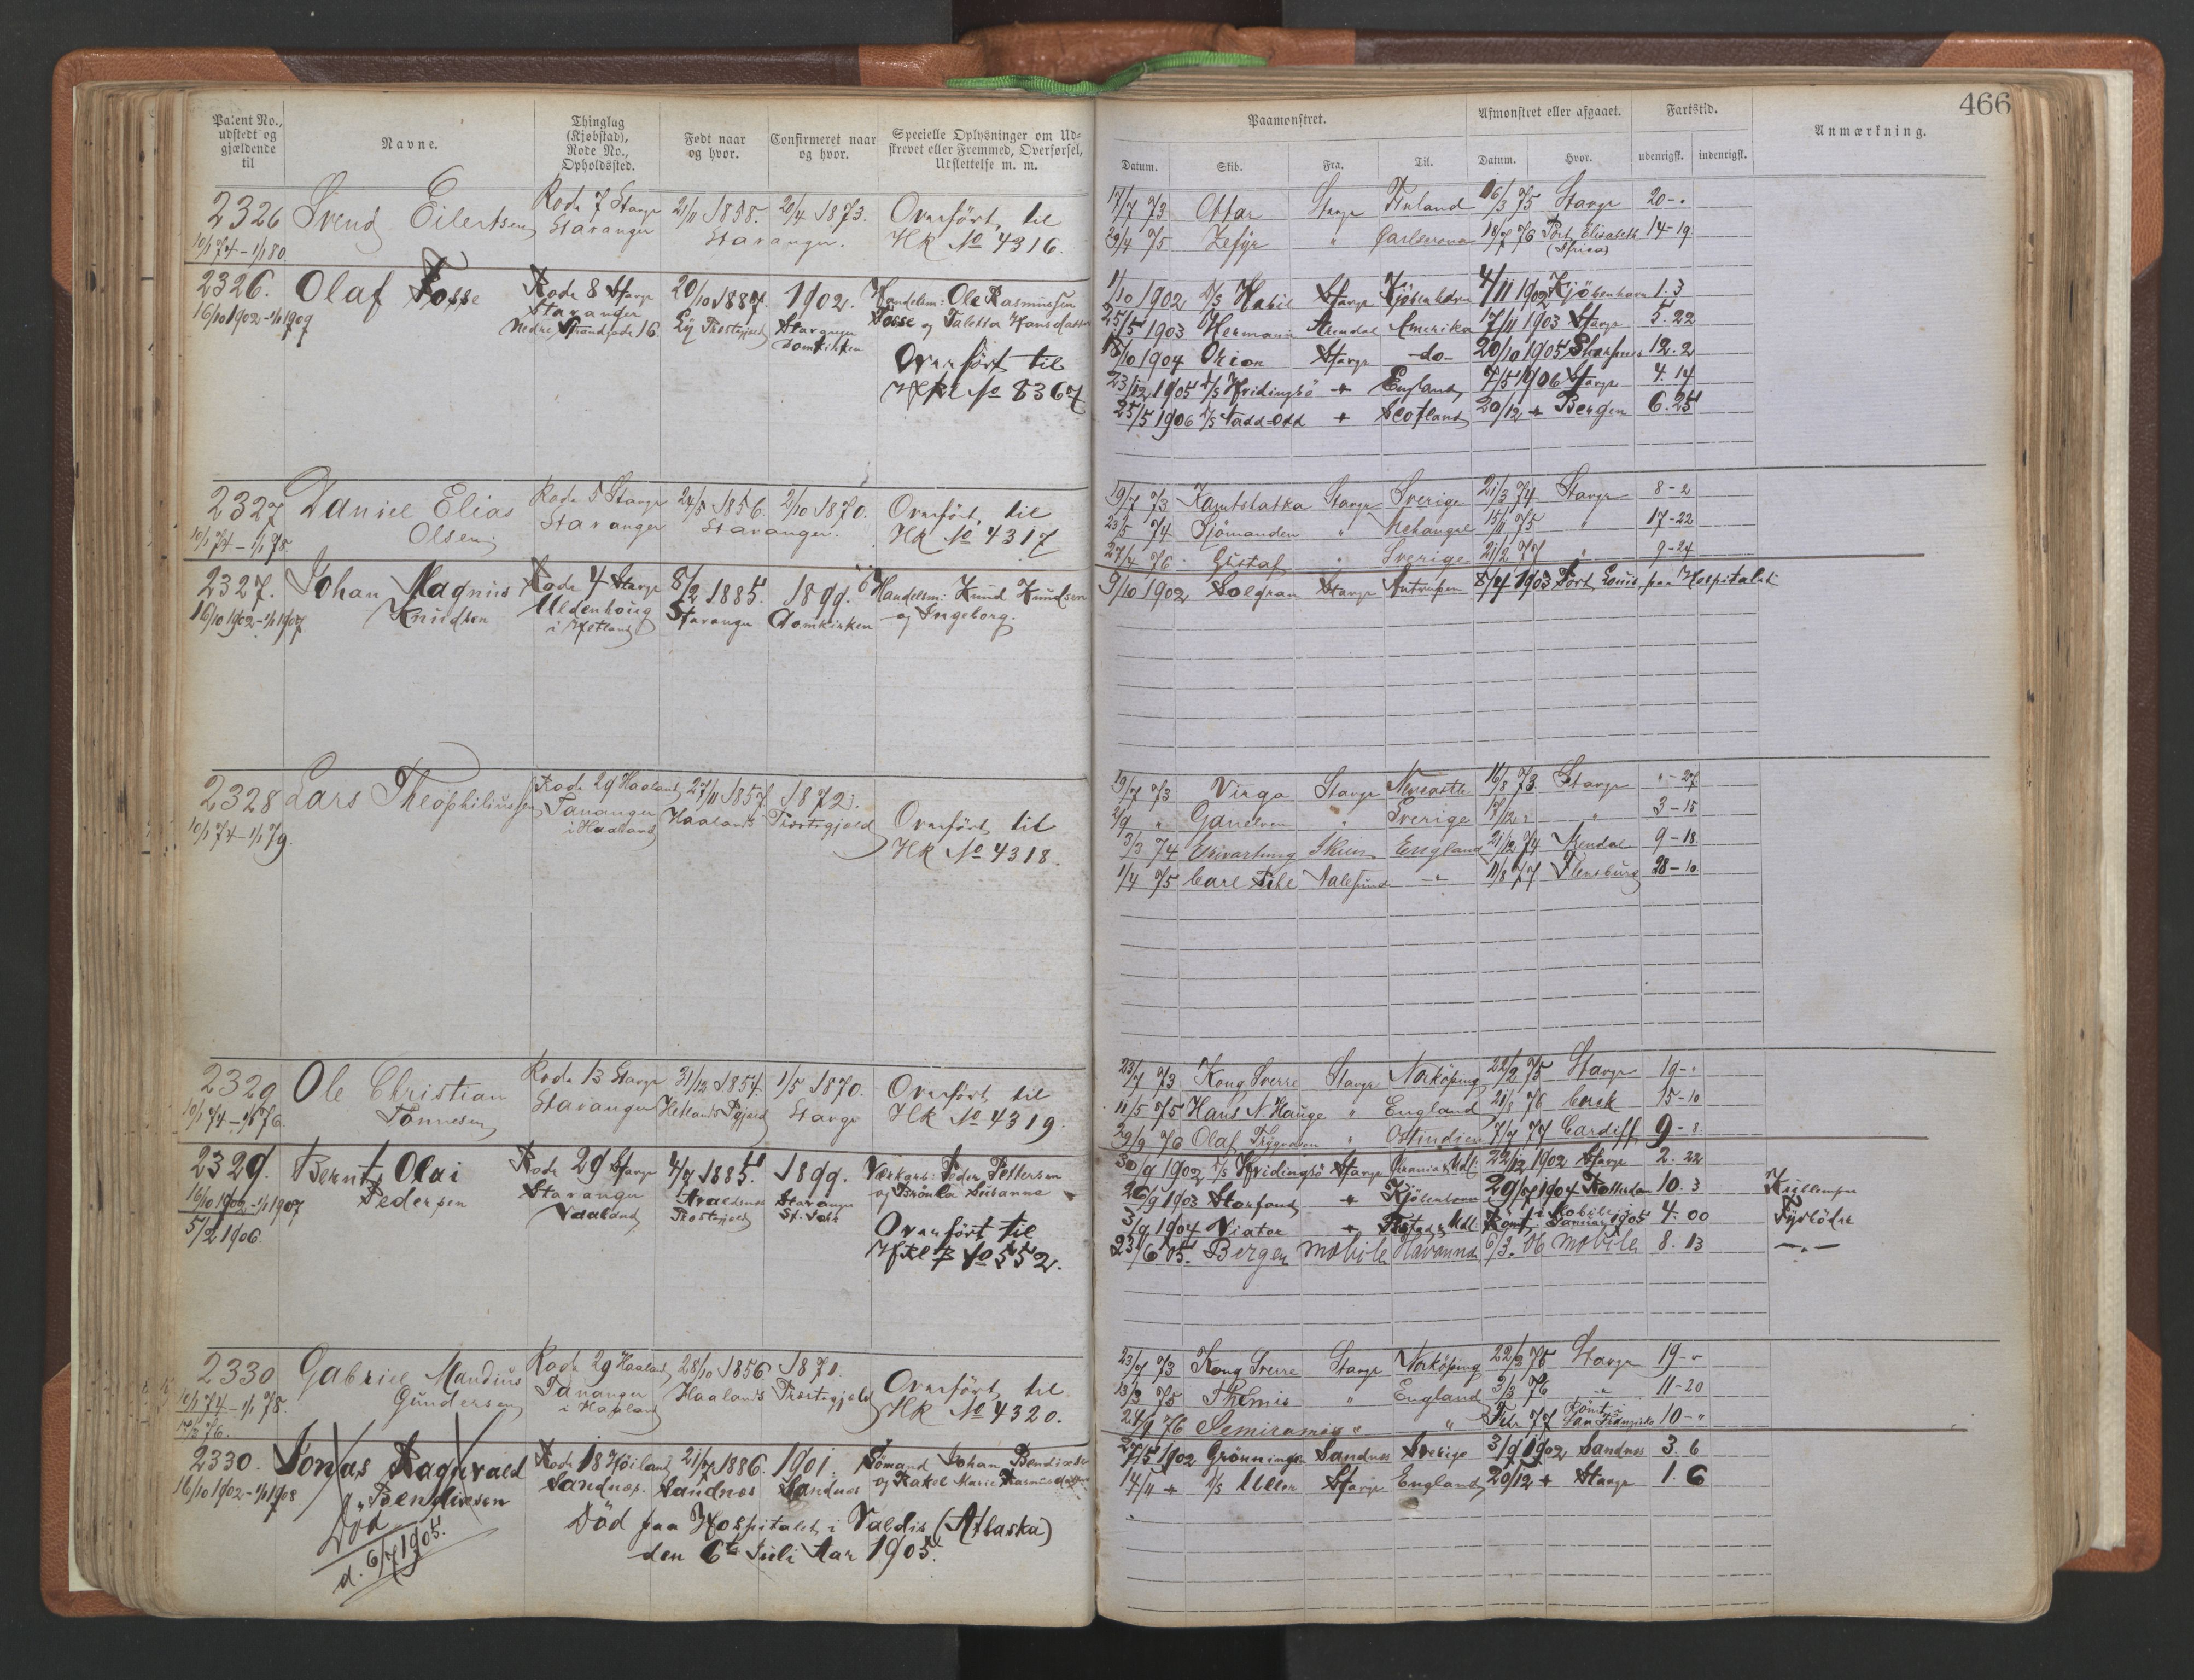 466
Patent No., udstedt og gjældende til
Navne.
Thinglag (Kjøbstad), Rode No., Opholdssted.
Født naar og hvor.
Confirmeret naar og hvor.
Specielle Oplysninger om Udskrevet eller Fremmed, Overførsel, Udslettelse m. m.
Paamønstret.
Datum. Skib. Fra. Til.
Afmønstret eller afgaaet.
Datum. Hvor.
Fartstid.
udenrigsk. indenrigsk.
Anmærkning.
2326 Svend Eilertsen Rode 7 Stavgr 2/11 1858. 20/4 1873. Overført til
10/1 74 - 1/1 80. Stavanger Stavanger. HR No 4316.
17/7 73 Ottar Stavgr Finland 16/3 75 Stavgr 20-.
29/4 75 Zefyr " Carlscrona 18/7 76 Port Elisabeth 14-19
(Africa)
2326. Olaf Fosse Rode 8 Stavgr 20/10 1887. 1902. Handelsm: Ole Rasmussen
16/10 1902 - 1/1 1909 Stavanger Stavanger Fosse og Taletta Hansdatter
Nedre Strandgade 16. Domkirken
Overført til
HRl No 8367
11/10 1902 D/S Habil Stavgr Kjøbenhavn 4/11 1902 Kjøbenhavn 1. 3
25/5 1903 Hermann Arendal Amerika 17/11 1903 Stavgr 5. 22
18/10 1904 Orion Stavgr -do- 20/10 1905 12. 2
23/12 1905 D/S Hvidingsø + England 7/5 1906 Stavgr 4. 14
25/5 1906 D/S Nadd-Odd + Scotland 20/12 + Bergen 6. 25
2327 Daniel Elias Rode 5 Stavgr 24/5 1856. 2/10 1870. Overført til
10/1 74 - 1/1 78. Olsen Stavanger Stavanger. HR No 4317
19/7 73 Kamtslatka Stavgr Sverige 21/3 74 Stavgr 8-2
23/5 74 Sjømanden " 15/11 75 " 17-22
27/4 76. Gustaf " Sverige 21/2 77 " 9-24
2327. Johan Magnus Rode 4 Stavgr 8/2 1885. 1899. Handelsm: Knud Knudsen
16/10 1902 - 1/1 1907 Knudsen i Hetland Stavanger Domkirken og Ingeborg.
9/10 1902 Solgran Stavgr 8/4 1903 Port Louis, paa Hospitalet
2328 Lars Theophiliussen Rode 29 Haaland 27/11 1857 1872.
10/1 74 - 1/1 79. Tananger i Haaland Haalands Præstegjeld Overført til
HR No 4318.
19/7 73 Virgo Stavgr Newcastle 16/8 73 Stavgr "-27
2/9 " Ganelven " Sverige 17/12 " " 3-15
3/3 74 Skien England 21/12 74 Arendal 9-18.
1/4 75 Carl Aalesund -"- 11/8 77 Flensburg 28-10
2329 Ole Christian Rode 13 Stavgr 31/12 1854. 1/5 1870. Overført til
10/1 74 - 1/1 76. Tønnesen Stavanger Hetlands Pgjeld Stavgr HR No 4319.
23/7 73 Kong Sverre Stavgr Norköping 22/2 75 Stavgr 19-.
11/5 75 Hans N. Hauge " England 21/8 76 Cork 15-10
29/9 76 Olaf Trygvason " Ostindien 7/7 77 Cardiff 9-8.
2329. Bernt Olai Rode 29 Stavgr 4/7 1885. 1899. Peder Pettersen
16/10 1902 - 1/1 1907 Pedersen Stavanger Stavanger og Susanne
5/2 1906. Vaaland Præstegjeld St. Johs
Overført til
HRl No 552.
30/9 1902 D/S Hvidingsø Stavgr 22/12 1902 Stavgr 2. 22
26/9 1903 Storfond + Kjøbenhavn 29/7 1904 Rotterdam 10. 3 Kullemper
3/9 1904 Viator + Rømt i Mobile i Januar 1905 4. 00 Fyrbøder
23/6 05. Bergen Mobile Havanna 6/3. 06 Mobile 8. 13 -"-
2330 Gabriel Mandius Rode 29 Haaland 28/10 1856. 1871. Overført til
10/1 74 - 1/1 78. Gundersen Tananger i Haaland Haalands Præstegjeld HR No 4320.
23/7 73 Kong Sverre Stavgr Norköping 22/2 75 Stavgr 19-"
13/3 75 Themis " England 3/3 76 -"- 11-20
24/9 76 Semiramis " " Febr 77 Rømt i San Franzisko 10-"
2330. Jonas Ragnvald Rode 18 Høiland 21/7 1886. 1901. Sømand Johan Bendixsen
16/10 1902 - 1/1 1908 Bendixsen Sandnæs. Sandnæs Sandnæs og Rakel Marie Rasmusdatter
Død
d. 6/7 1905.
Død paa Hospitalet i Valdis (Atlaska)
den 6te Juli Aar 1905.
27/5 1902 Grønningen Sandnæs Sverige 3/9 1902 Sandnæs 3. 6
14/11 + D/S Uller Stavgr England 20/12 + Stavgr 1. 6